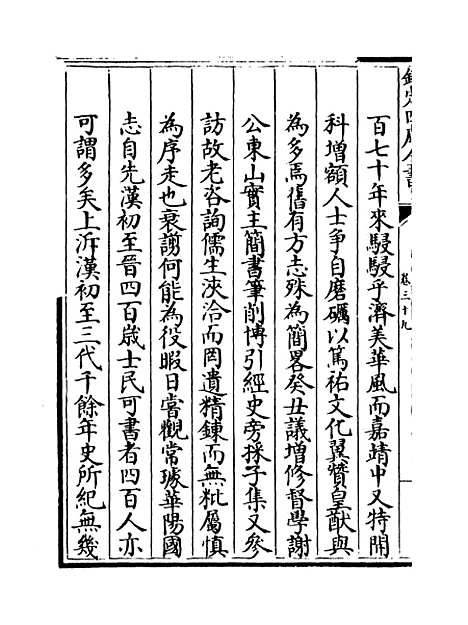 欽定四庫全書
卷三十九
百七十年來駸駸乎濟美華風而嘉靖中又特開
科增額人士爭自磨礪以篤祐文化翼贊皇猷與
為多焉舊有方志殊為簡畧癸丑議增修督學謝
公東山實主簡書筆削博引經史旁採子集又參
訪故老咨詢儒生浹洽而罔遺精鍊而無粃屬慎
為序走也衰謝何能為役暇日嘗觀常璩華陽國
志自先漢初至晉四百歲士民可書者四百人亦
可謂多矣上泝漢初至三代千餘年史所紀無幾